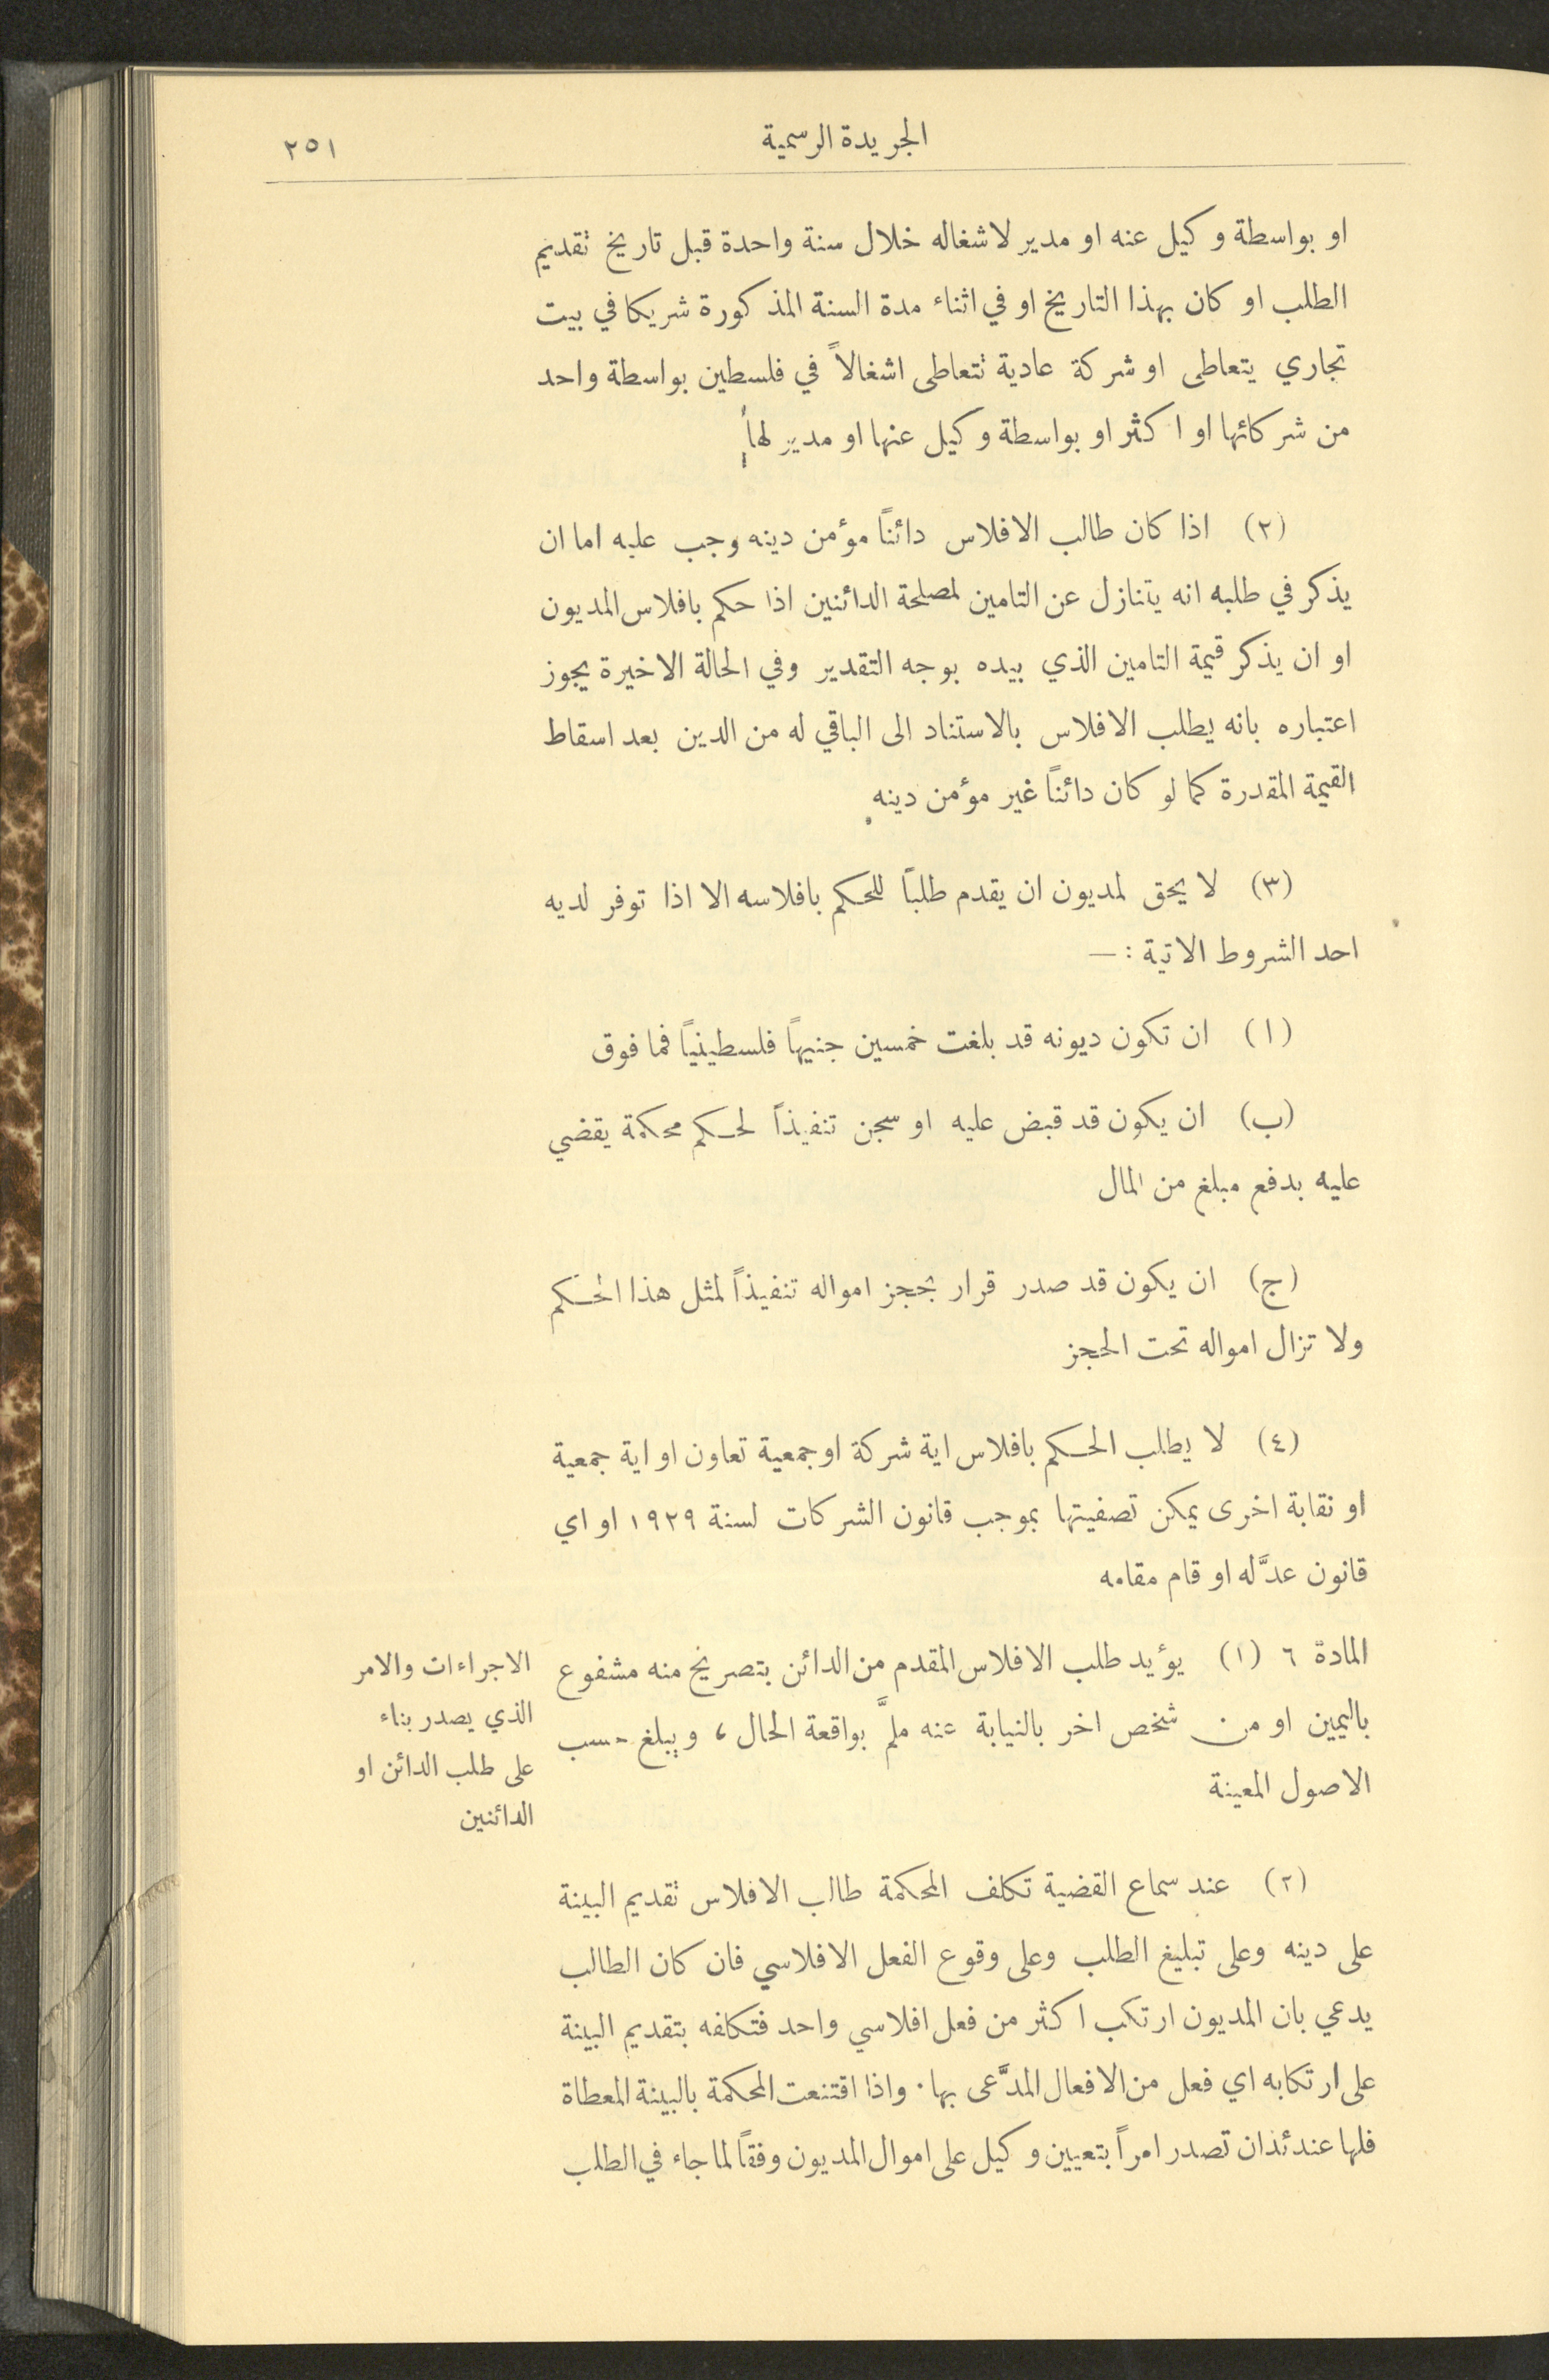 الجريدة الرسمية
٢٥١
او بواسطة وكيل عنه او مدير لاشغاله خلال سنة واحدة قبل تاريخ تقديم
الطلب او كان بهذا التاريخ او في اثناء مدة السنة المذكورة شريكا في بيت
تجاري يتعاطى او شركة عادية تتعاطى اشغالاً في فلسطين بواسطة واحد
من شركائها او اكثر او بواسطة وكيل عنها او مدير لها
(٢) اذا كان طالب الافلاس دائناً مؤمن دينه وجب عليه اما ان
يذكر في طلبه انه يتنازل عن التامين لمصلحة الدائنين اذا حكم بافلاس المديون
او ان يذكر قيمة التامين الذي بيده بوجه التقدير وفي الحالة الاخيرة يجوز
اعتباره بانه يطلب الافلاس بالاستناد الى الباقي له من الدين بعد اسقاط
القيمة المقدرة كما لو كان دائناً غير مؤمن دينه.
(٣) لا يحق لمديون ان يقدم طلباً للحكم بافلاسه الا اذا توفر لديه
احد الشروط الاتية : —
(ا) ان تكون ديونه قد بلغت خمسين جنيهاً فلسطينياً فما فوق
(ب) ان يكون قد قبض عليه او سجن تنفيذاً لحكم محكمة يقضي
عليه بدفع مبلغ من المال
(ج) ان يكون قد صدر قرار بحجز امواله تنفيذاً لمثل هذا الحكم
ولا تزال امواله تحت الحجز
(٤) لا يطلب الحكم بافلاس اية شركة او جمعية تعاون او اية جمعية
او نقابة اخرى يمكن تصفيتها بموجب قانون الشركات لسنة ١٩٢٩ او اي
قانون عدَّله او قام مقامه
المادة ٦ (١) يؤيد طلب الافلاس المقدم من الدائن بتصريح منه مشفوع
باليمين او من شخص اخر بالنيابة عنه ملمَّ بواقعة الحال، ويبلغ حسب
الاصول المعينة
الاجراءات والامر
الذي يصدر بناء
على طلب الدائن او
الدائنين
(٢) عند سماع القضية تكلف المحكمة طالب الافلاس تقديم البينة
على دينه وعلى تبليغ الطلب وعلى وقوع الفعل الافلاسي فان كان الطالب
يدعي بان المديون ارتكب اكثر من فعل افلاسي واحد فتكلفه بتقديم البينة
على ارتكابه اي فعل من الافعال المدَّعى بها. واذا اقتنعت المحكمة بالبينة المعطاة
فلها عندئذ ان تصدر امراً بتعيين وكيل على اموال المديون وفقاً لما جاء في الطلب